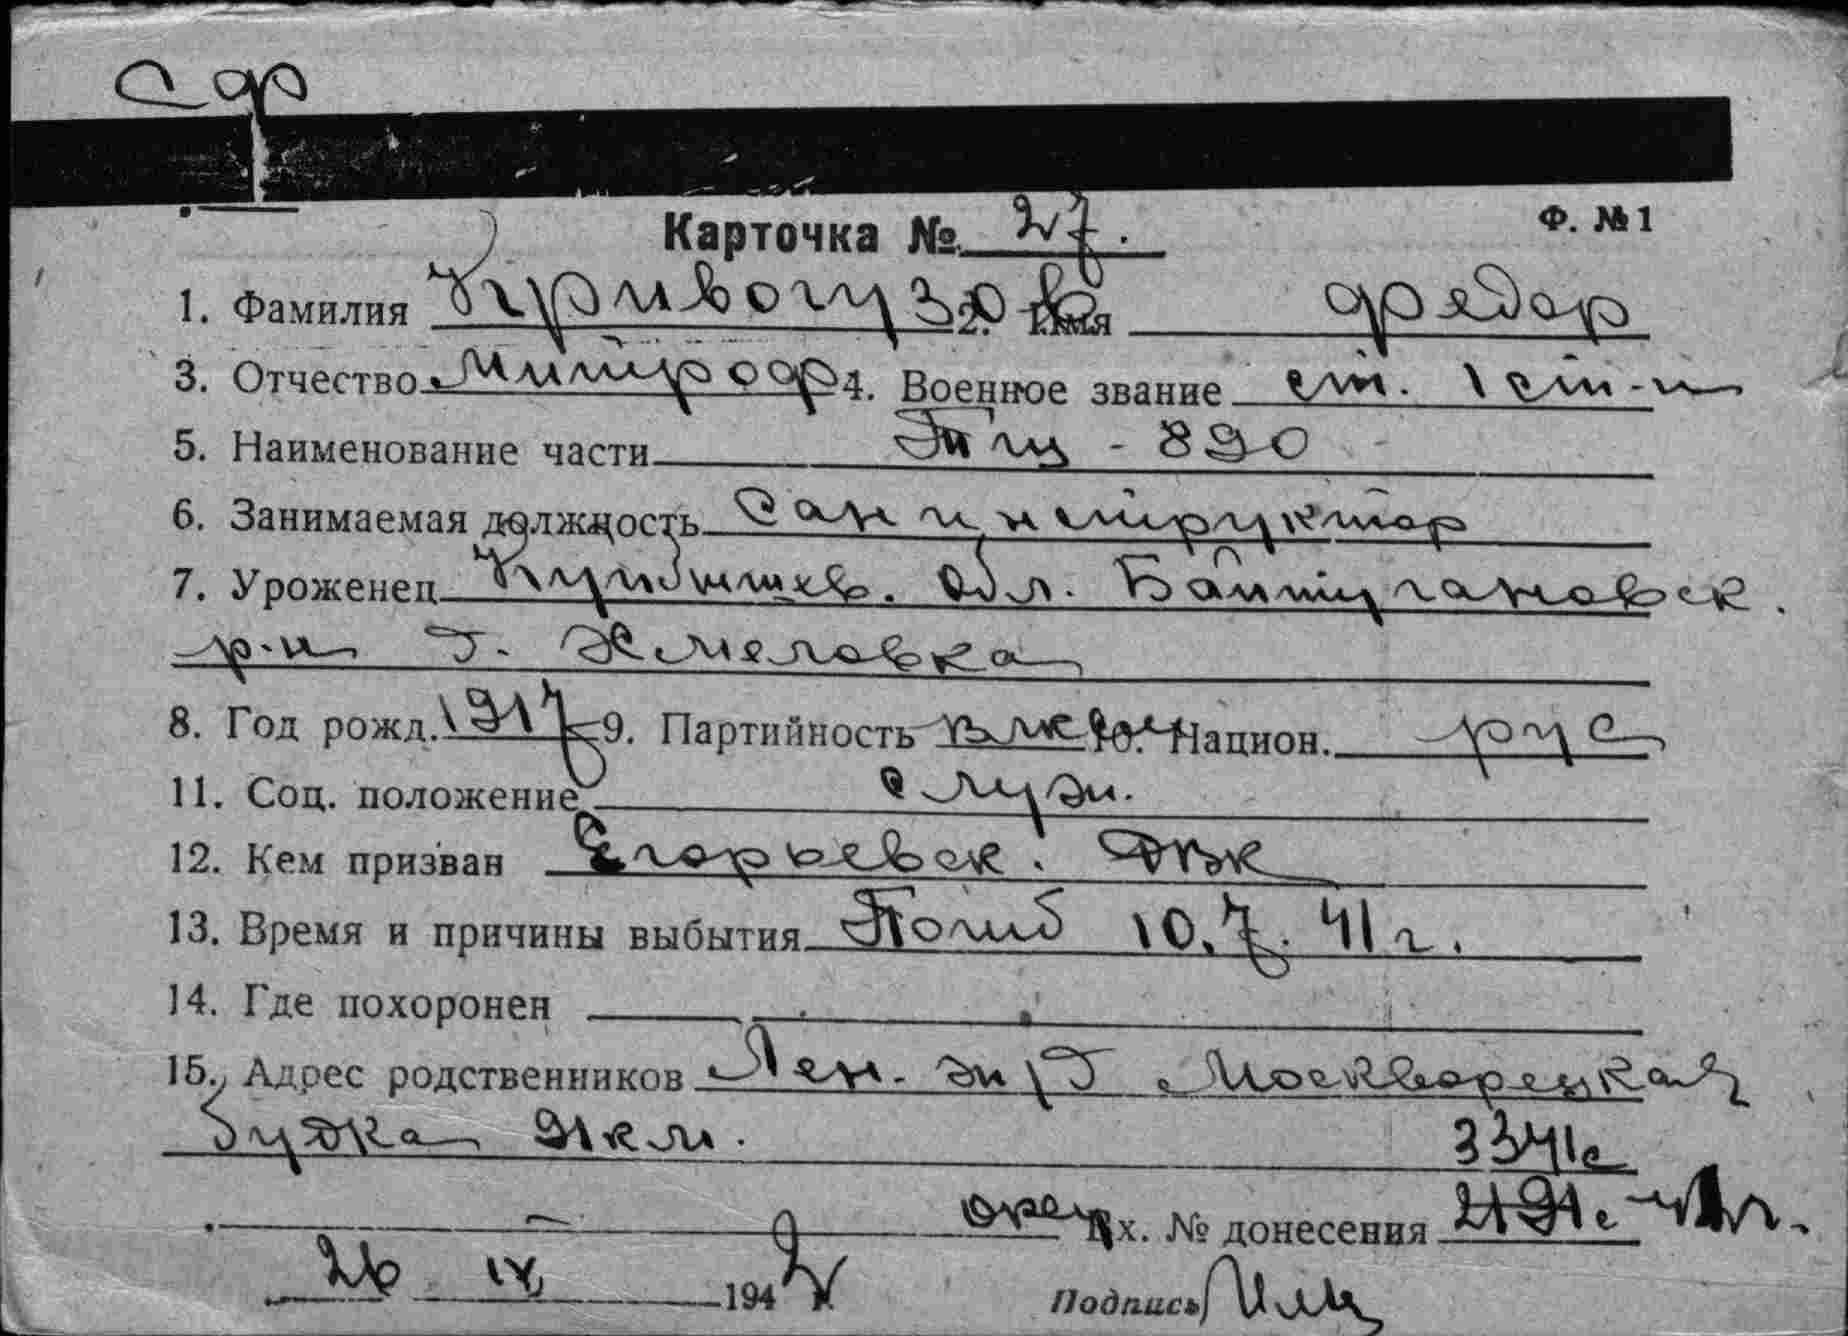 Карточка № 27.
Ф. №1
1. Фамилия Кривогузов 2. Имя Федор
3. Отчество Митроф 4. Военное звание ст.
5. Наименование части ППГ - 890
6. Занимаемая должность Сан инструктор
7. Уроженец Куйбышев. Обл. Байтугановск.
р-н Хмелевка
8. Год рожд. 1917 9. Партийность ВЛКСМ 10. Национ. рус
11. Соц. положение служ.
12. Кем призван Егорьевск. РВК
13. Время и причины выбытия Погиб 10.7.41 г.
14. Где похоронен
15. Адрес родственников Лен. ж/д Москворецкая
будка 91 км.
3341с
Вх. № донесения
26 IX 1942
Подпись